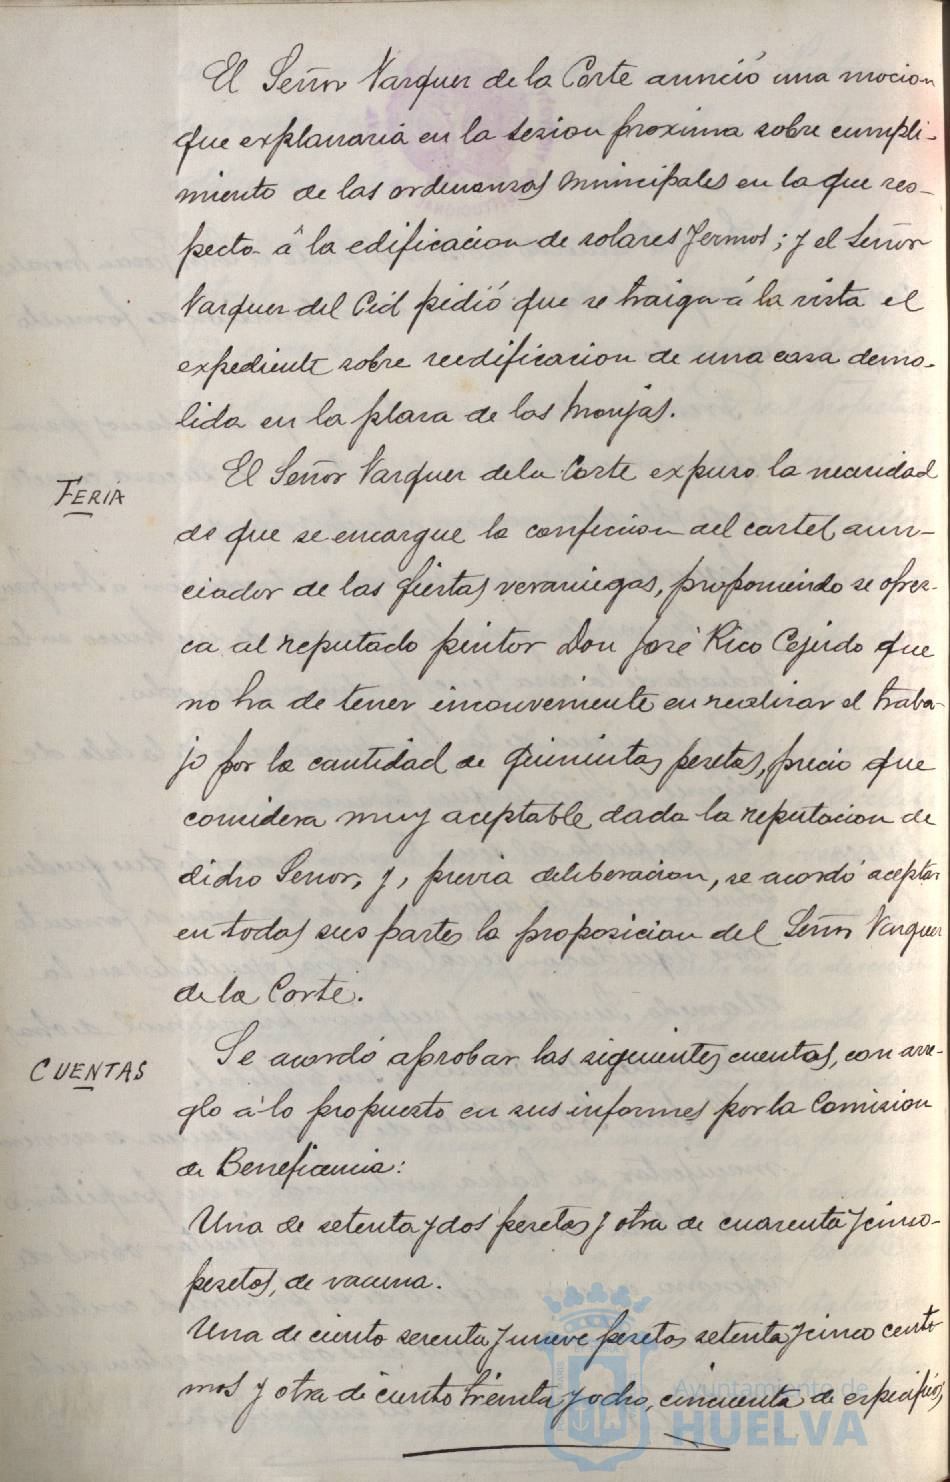 El Señor Vazquez de la Corte anunció una mocion
que explanaria en la sesion proxima sobre cumpli-
miento de las ordenanzas municipales en la que res-
pecta á la edificacion de solares yermos; y el Señor
Vazquez del Cid pidió que se traiga á la vista el
expediente sobre reedificacion de una casa demo-
lida en la plaza de las Monjas.
FERIA
El Señor Vazquez de la Corte expuso la necesidad
de que se encargue la confección del cartel anun-
ciador de las fiestas veraniegas, proponiendo se ofrez-
ca al reputado pintor Don José Rico Cejudo que
no ha de tener inconveniente en realizar el traba-
jo por la cantidad de quinientas pesetas, precio que
considera muy aceptable dada la reputacion de
dicho Señor, y, previa deliberacion, se acordó aceptar
en todas sus partes la proposicion del Señor Vazquez
de la Corte.
CUENTAS
Se acordó aprobar las siguientes cuentas, con arre-
glo á lo propuesto en sus informes por la Comision
de Beneficencia:
Una de setenta y dos pesetas y otra de cuarenta y cinco
pesetas, de vacuna.
Una de ciento sesenta y nueve pesetas setenta y cinco centi-
mos y otra de ciento treinta y ocho, cincuenta de especificos
Ayuntamiento de
HUELVA